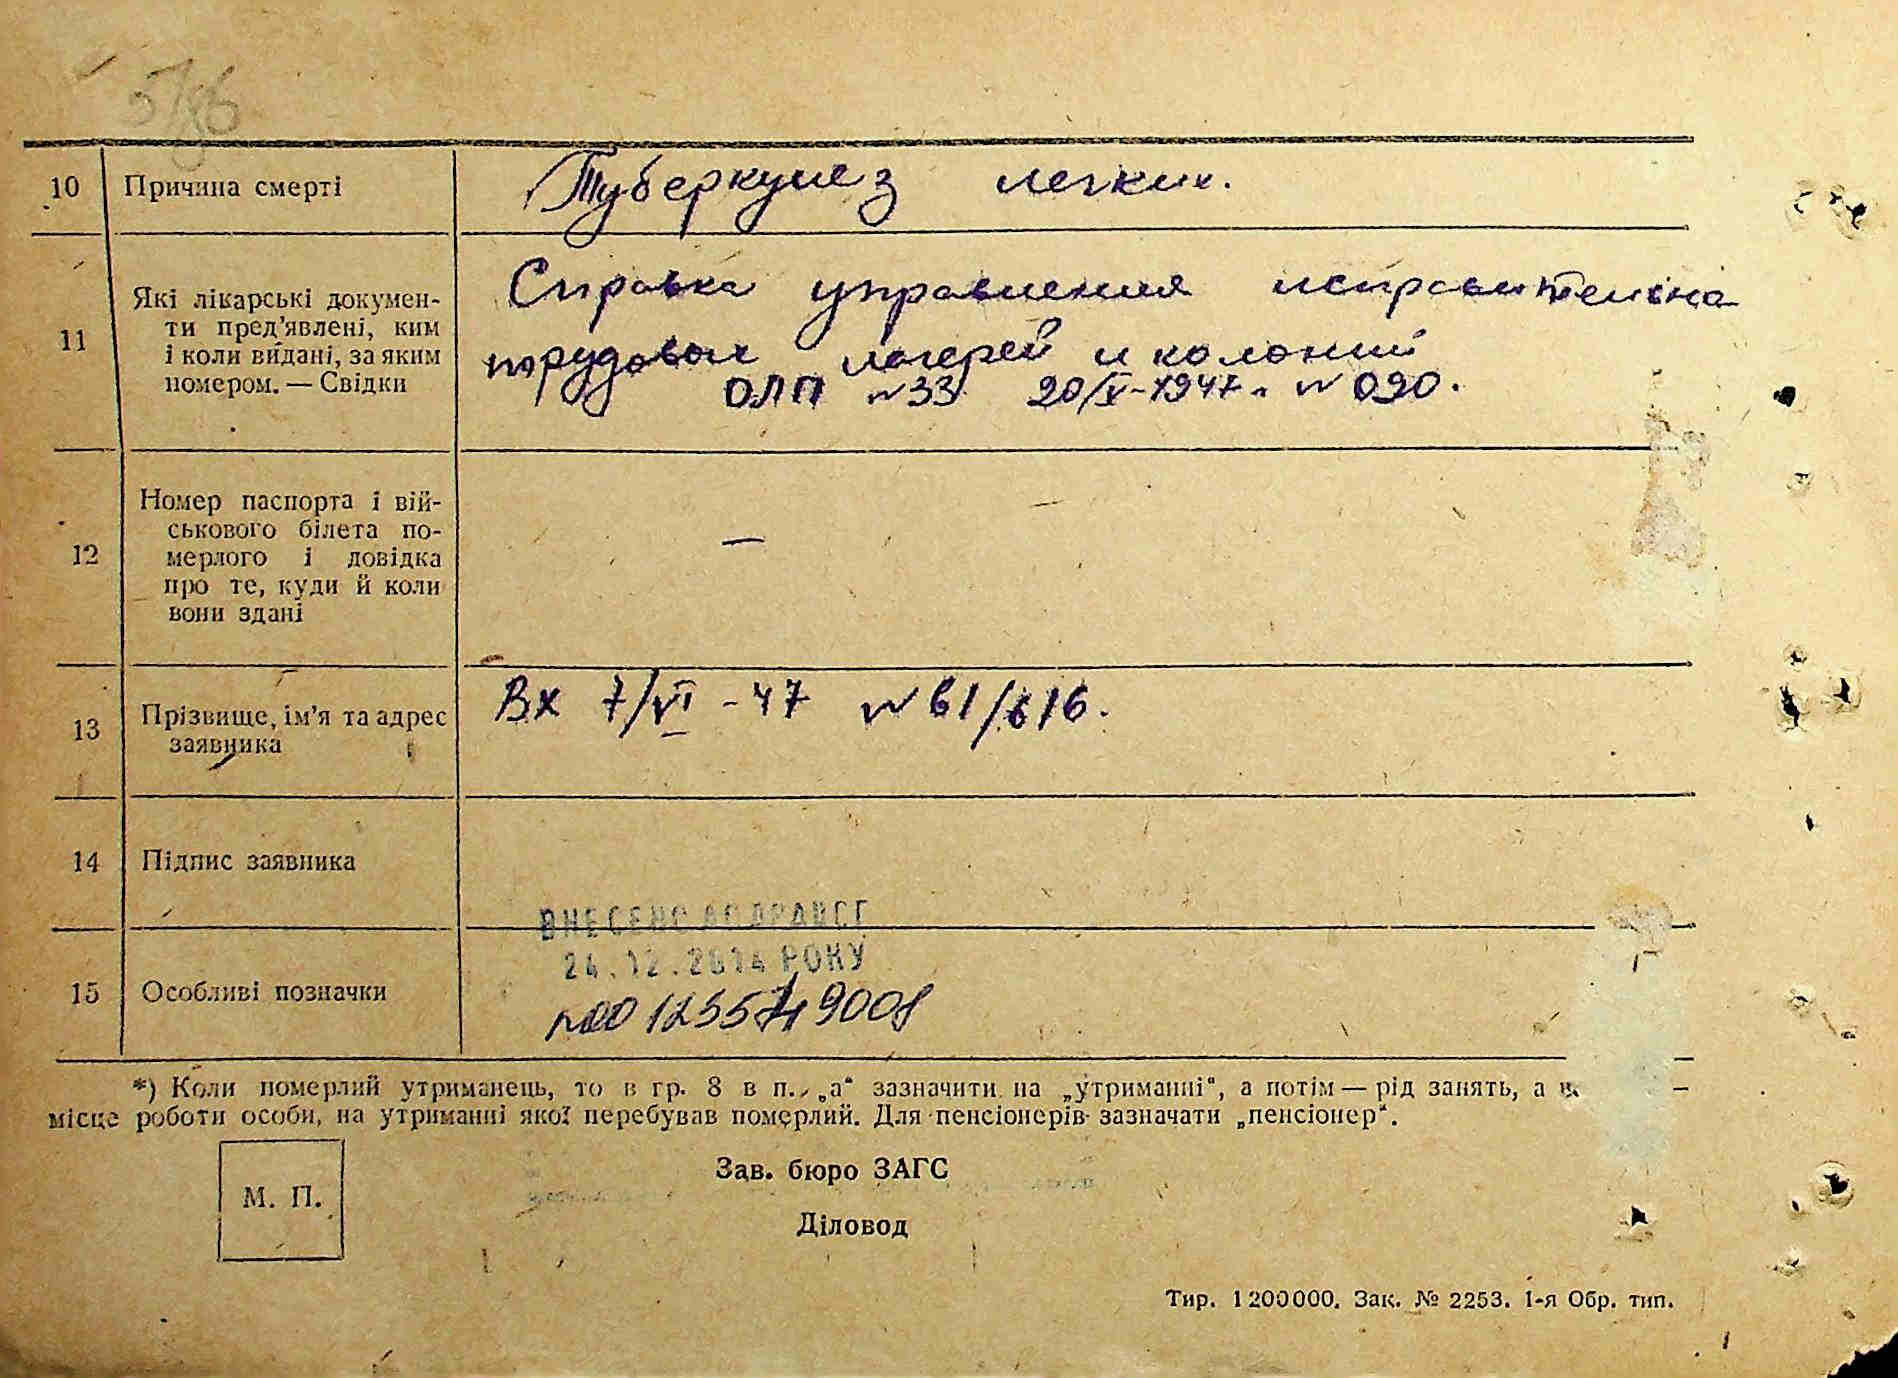 10 Причина смерті Туберкулез легких.
11 Які лікарські докумен-
ти пред'явлені, ким
і коли видані, за яким
номером. — Свідки
Справка управления исправительна
трудовых лагерей и колоний
ОЛП №33 20/V-1947г. №090.
12 Номер паспорта і вій-
ськового білета по-
мерлого і довідка
про те, куди й коли
вони здані
—
13 Прізвище, ім'я та адрес
заявника
Вх 7/VI-47 №61/616.
14 Підпис заявника
15 Особливі позначки
ВНЕСЕНО ДО ДРАЦСГ
24.12.2014 РОКУ
*) Коли померлий утриманець, то в гр. 8 в п. „а“ зазначити на „утриманні“, а потім — рід занять, а
місце роботи особи, на утриманні якої перебував померлий. Для пенсіонерів зазначати „пенсіонер“.
М. П.
Зав. бюро ЗАГС
Діловод
Тир. 1200000. Зак. № 2253. 1-я Обр. тип.